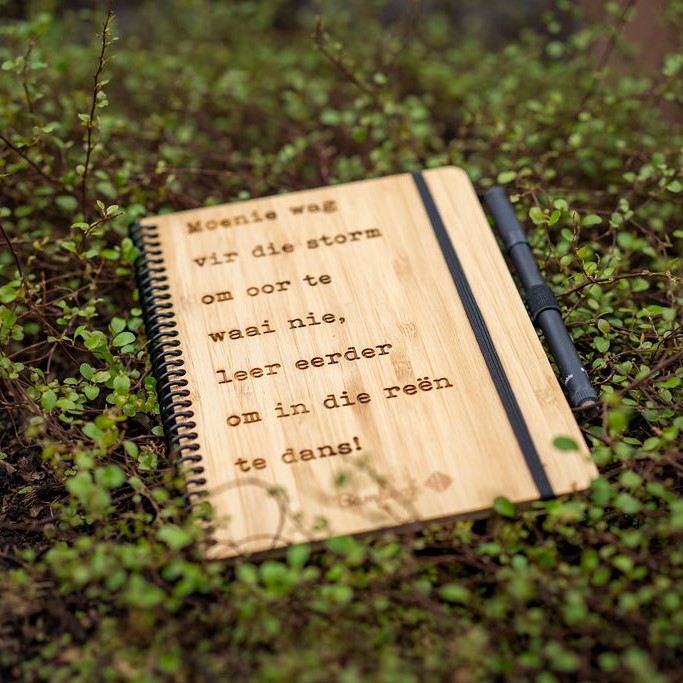 Moenie wag
vir die storm
om oor te
waai nie,
leer eerder
om in die reën
te dans!